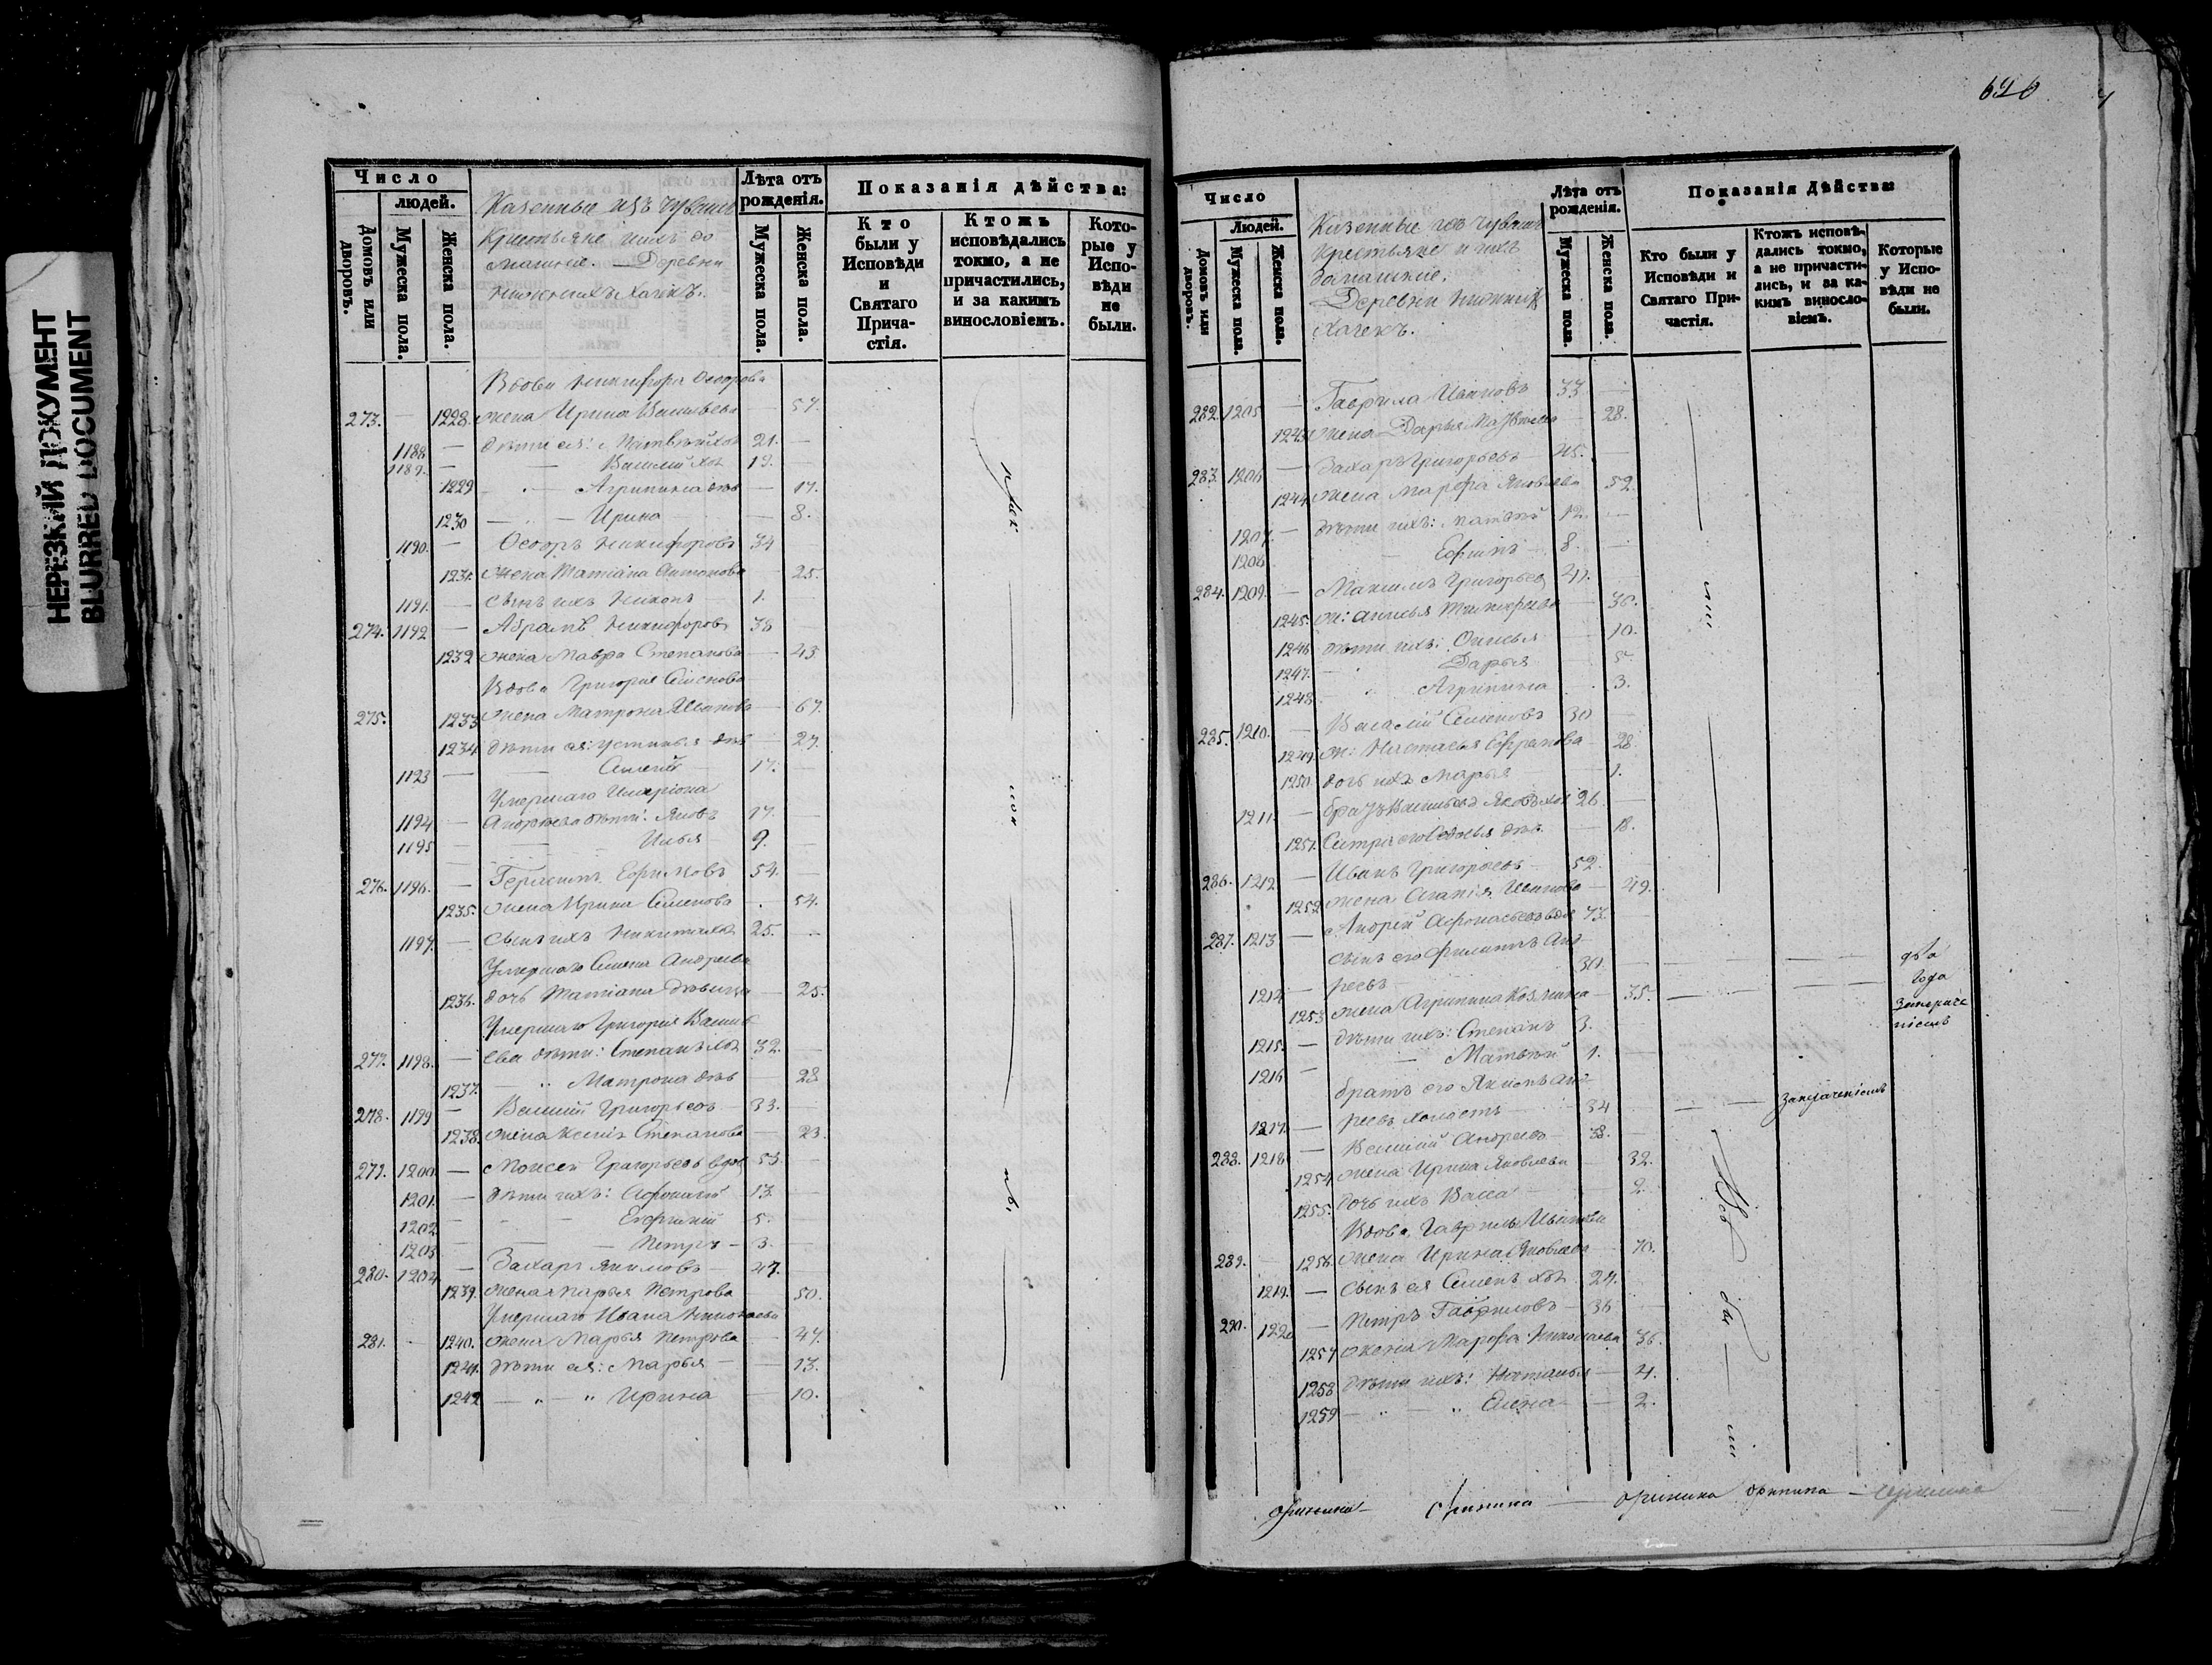 НЕРЕЗКИЙ ДОКУМЕНТ
BLURRED DOCUMENT
Число
людей.
Домовъ или дворовъ.
Мужеска пола.
Женска пола.
Казенные изъ чувашъ
Крестьяне и ихъ до
машніе. Деревни
Лѣта отъ рожденія.
Мужеска пола.
Женска пола.
Показанія дѣйства:
Кто были у Исповѣди и Святаго Причастія.
Ктожъ исповѣдались токмо, а не причастились, и за какимъ винословіемъ.
Которые у Исповѣди не были.
Вдова Никифора Ѳеодорова
273. — 1228. жена Ирина Васильева — 57.
1188 — дѣти ея: Матвѣй хол 21. —
1189. — Василій хол 19.
1229 — Агрипина дѣв — 17.
1230 — Ирина — 8.
1190. — Ѳеодоръ Никифоровъ 34
1231. жена Татіана Антонова — 25.
1191. — сынъ ихъ Никонъ 1.
274. 1192 — Абрамъ Никифоровъ 38
1232 жена Мавра Степанова — 43
Вдова Григорія Семенова
275. 1233 жена Матрона Иванова — 67.
1234 дѣти ея: Устинья дѣв — 27.
1193 — 17.
Умершаго Иларіона
1194 — Андреева дѣти: Яковъ 17.
1195 Илья 9.
276. 1196. — Герасимъ Ефимовъ 54.
1235. жена Ирина Семенова 54.
1197. — сынъ ихъ Никита хол 25.
Умершаго Семена Андреева
1236. дочь Татіана дѣвица — 25.
Умершаго Григорія Василь
277. 1198. — ева дѣти: Степанъ хол 32.
1237. Матрона дѣв — 28
278. 1199 — Василій Григорьевъ 33.
1238. жена Ксенія Степанова — 23.
279. 1200. — Моисей Григорьевъ вдов 53
1201. — дѣти ихъ: Афонасій 13.
1202 5.
1203 Петръ — 3.
280. 1204 — Захаръ Якимовъ 47.
1239. жена Марья Петрова 50.
Умершаго Ивана Николаева
281. — 1240. жена Марья Петрова — 47.
1241. дѣти ея: Марья — 13.
1242 — " — " Ирина — 10.
640
Число
Людей.
Домовъ или дворовъ.
Мужеска пола.
Женска пола.
Казенные изъ чувашъ
крестьяне и ихъ
домашніе.
Деревни
Лѣта отъ рожденія.
Мужеска пола.
Женска пола.
Показанія Дѣйства:
Кто были у Исповѣди и Святаго Причастія.
Ктожъ исповѣдались токмо, а не причастились, и за какимъ винословіемъ.
Которые у Исповѣди не были.
282. 1205 — Гаврила Ивановъ 33 —
1243 жена Дарья 28.
283. 1206 — Захаръ Григорьевъ 45.
1244 жена Марфа Яковлева 52.
1207. — дѣти ихъ: Матвѣй 12. —
1208 Ефимъ 8.
284. 1209. — Максимъ Григорьевъ 41.
1245. ж: Анисья Тимофеева 36.
1246 дѣти ихъ: Анисья 10.
1247. Дарья 5
1248 Агрипина 3.
285. 1210. — Василій Семеновъ 30
1249 ж: Настасья 28
1250 дочь ихъ Марья 1.
1211. — 26
1251. дѣв. — 18.
286. 1212. — Иванъ Григорьевъ 52.
1252 жена Агапія Иванова — 49.
287. 1213. — Андрей Афонасьевъ вдов 73.
сынъ его Филиппъ Анд-
1214 — реевъ 30. — два года
1253 жена Агрипина Козмина — 35.
1215. — дѣти ихъ: Степанъ 3.
1216 — Матвѣй 1.
братъ его Якимъ Анд-
1217. — реевъ холостъ 34
288. 1218 — Василій Андреевъ 38.
1254 жена Ирина Яковлева 32.
1255. дочь ихъ Васса 2.
Вдова Гаврилы Иванова
289. — 1256. жена Ирина Яковлева 70.
1219. — сынъ ея Семенъ хол 24.
290. 1220 — Петръ Гавриловъ 36
1257 жена Марфа Николаева 36.
1258 дѣти ихъ: Наталья 4.
1259 — " — " Елена — 2.